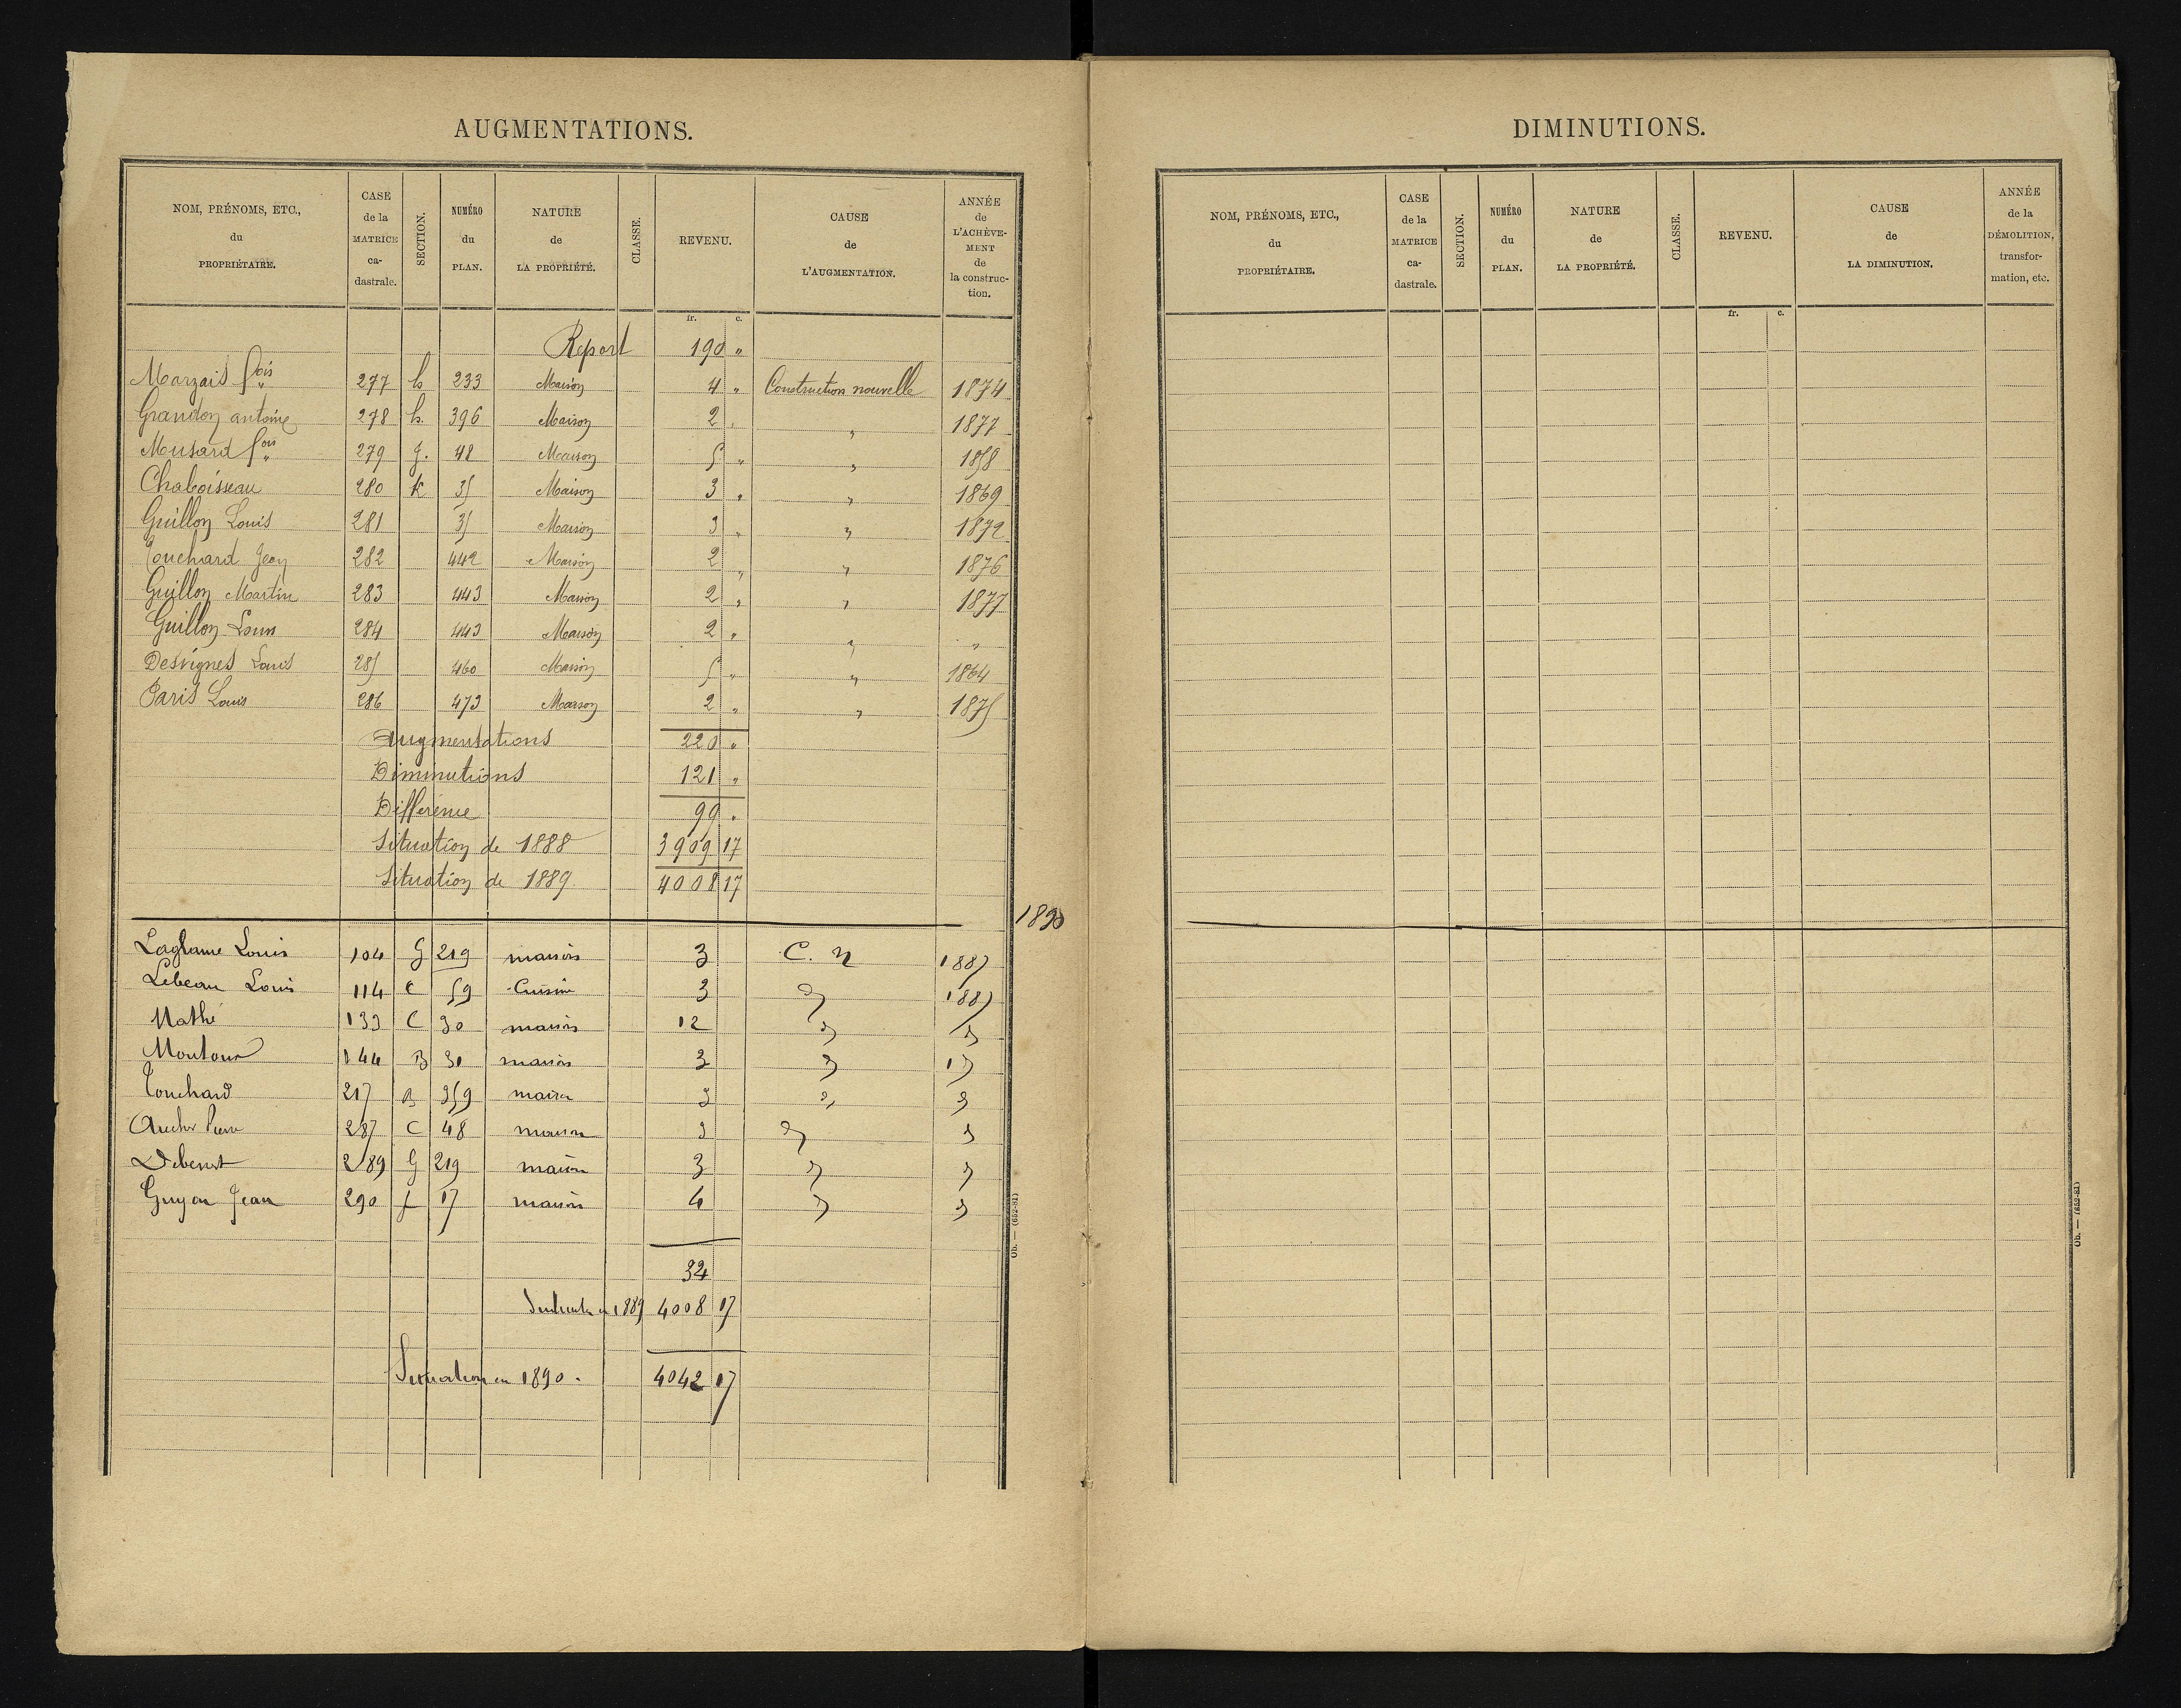 AUGMENTATIONS.
NOM, PRÉNOMS, ETC., du PROPRIÉTAIRE. CASE de la MATRICE ca-dastrale. SECTION. NUMÉRO du PLAN. NATURE de LA PROPRIÉTÉ. CLASSE. REVENU. CAUSE de L'AUGMENTATION. ANNÉE de L'ACHÈVE-MENT de la construc-tion.
fr. c.
Report 190 "
Marzais fois 277 h 233 Maison 4 " Construction nouvelle 1874
Grandon antoine 278 h. 396 Maison 2 " " 1877
Musard fois 279 g. 48 Maison 5 " " 1858
Chaboisseau 280 K 35 Maison 3 " " 1869
Guillon Louis 281 35 Maison 3 " " 1872
Touchard Jean 282 442 Maison 2 " " 1876
Guillon Martin 283 443 Maison 2 " " 1877
Guillon Louis 284 443 Maison 2 " " "
Desvignes Louis 285 460 Maison 5 " " 1864
Paris Louis 286 473 Maison 2 " " 1875
Augmentations 220 "
Diminutions 121 "
Différence 99 "
Situation de 1888 3909 17
Situation de 1889 4008 17
1890
Louis 104 G 219 maison 3 C. n 1887
Lebeau Louis 114 C 59 Cuisine 3 " 1887
Mathé 133 C 30 maison 12 " "
144 B 30 maison 3 "
Touchard 217 B 359 maison 3 " "
287 C 48 maison 3 " "
289 G 219 maison 3 " "
Guyon Jean 290 f 17 maison 4 " "
34
Situation en 1889 4008 17
Situation en 1890. 4042 17
Ob. — (652-81)
DIMINUTIONS.
NOM, PRÉNOMS, ETC., du PROPRIÉTAIRE. CASE de la MATRICE ca-dastrale. SECTION. NUMÉRO du PLAN. NATURE de LA PROPRIÉTÉ. CLASSE. REVENU. CAUSE de LA DIMINUTION. ANNÉE de la DÉMOLITION, transfor-mation, etc.
fr. c.
Ob. — (652-81)